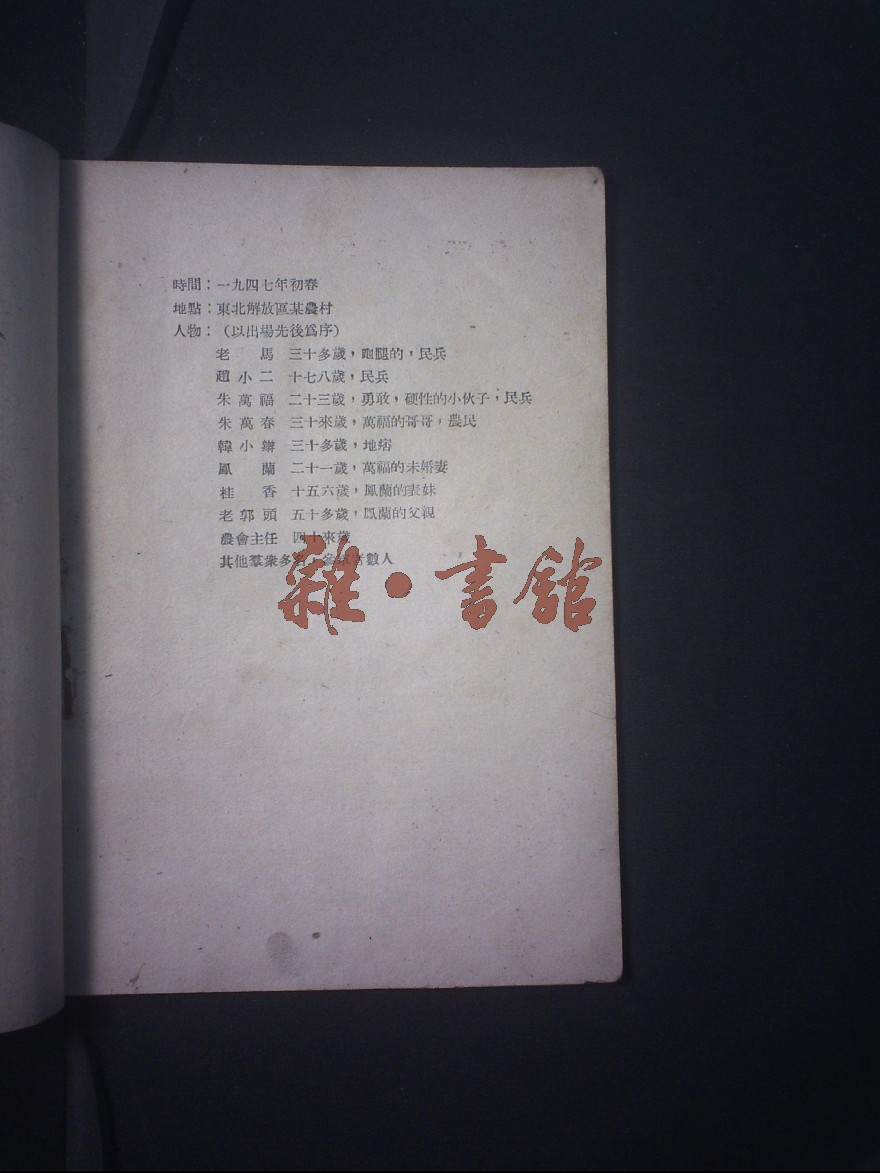 時間：一九四七年初春
地點：東北解放區某農村
人物：（以出場先後爲序）
老　馬　三十多歲，跑腿的，民兵
趙小二　十七八歲，民兵
朱萬福　二十三歲，勇敢，硬性的小伙子，民兵
朱萬春　三十來歲，萬福的哥哥，農民
韓小辮　三十多歲，地痞
鳳　蘭　二十一歲，萬福的未婚妻
桂　香　十五六歲，鳳蘭的表妹
老郭頭　五十多歲，鳳蘭的父親
農會主任　四十來歲
其他羣衆多名　參軍者數人
雜・書館